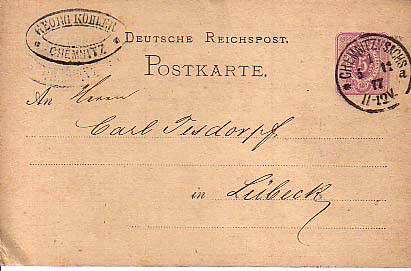 GEORG KÖHLER
CHEMNITZ
DEUTSCHE REICHSPOST.
POSTKARTE.
CHEMNITZ (SACHS)
12
77
11-12V.
An Herrn
Carl Tesdorpf
in Lübeck